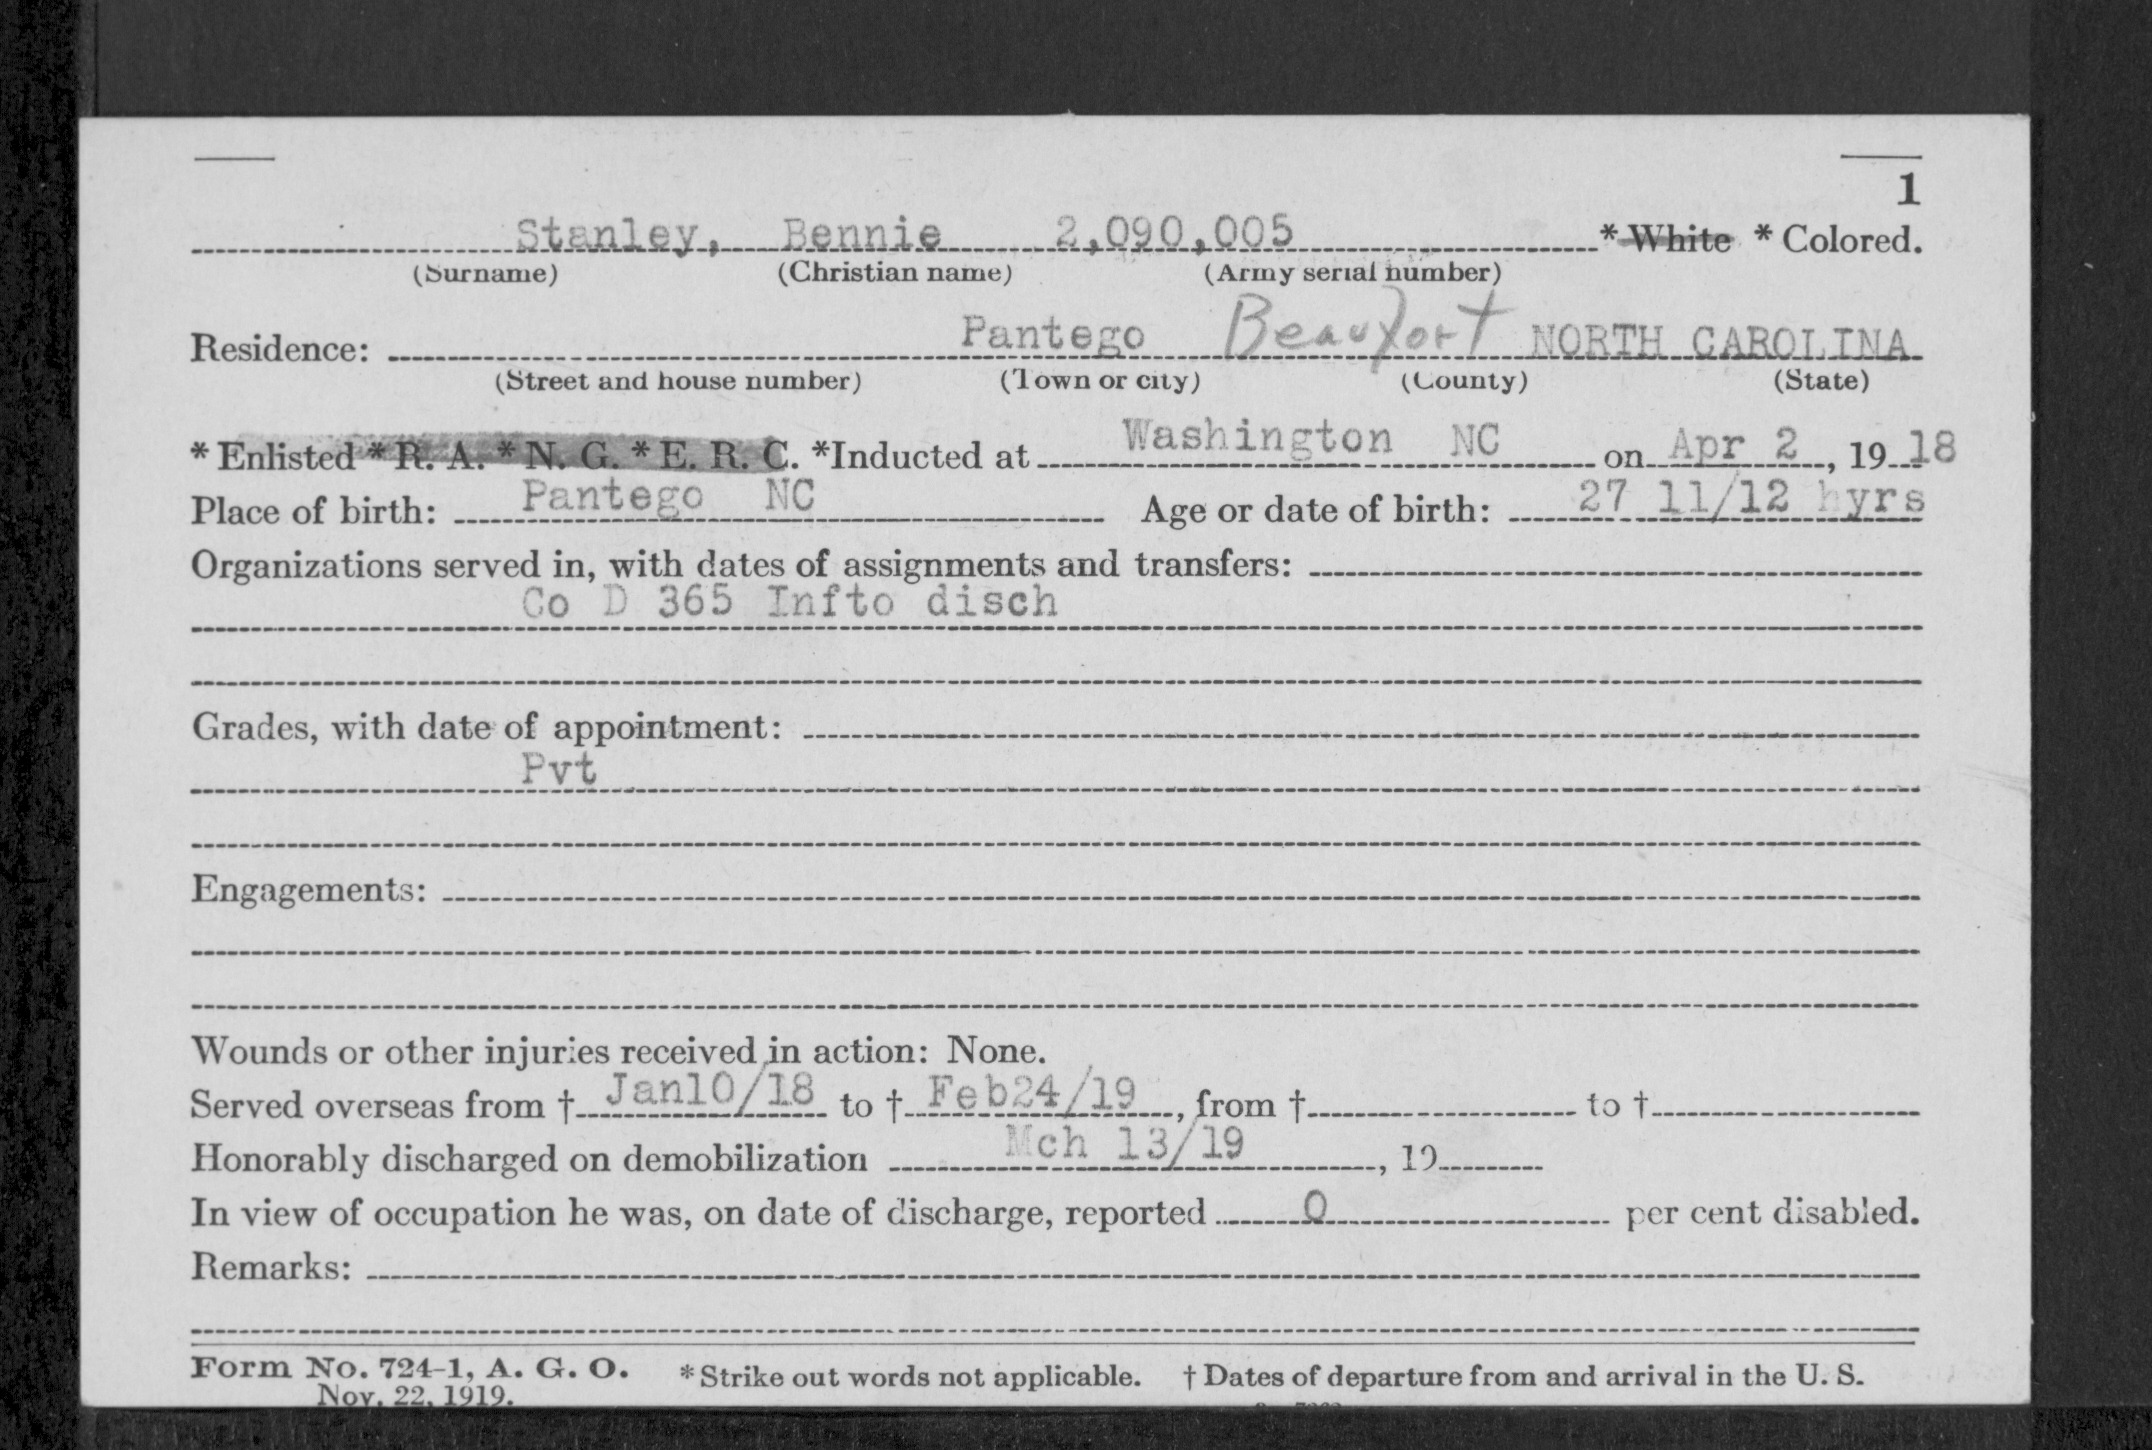 1
Stanley, Bennie 2,090,005 * White * Colored.
(Surname) (Christian name) (Army serial number)
Residence: Pantego Beaufort NORTH CAROLINA
(Street and house number) (Town or city) (County) (State)
* Enlisted * R. A. * N. G. * E. R. C. *Inducted at Washington NC on Apr 2, 1918
Place of birth: Pantego NC Age or date of birth: 27 11/12 hyrs
Organizations served in, with dates of assignments and transfers:
Co D 365 Infto disch
Grades, with date of appointment:
Pvt
Engagements:
Wounds or other injuries received in action: None.
Served overseas from † Jan10/18 to † Feb24/19, from † to †
Honorably discharged on demobilization Mch 13/19, 19
In view of occupation he was, on date of discharge, reported 0 per cent disabled.
Remarks:
Form No. 724-1, A. G. O. * Strike out words not applicable. † Dates of departure from and arrival in the U. S.
Nov. 22, 1919.